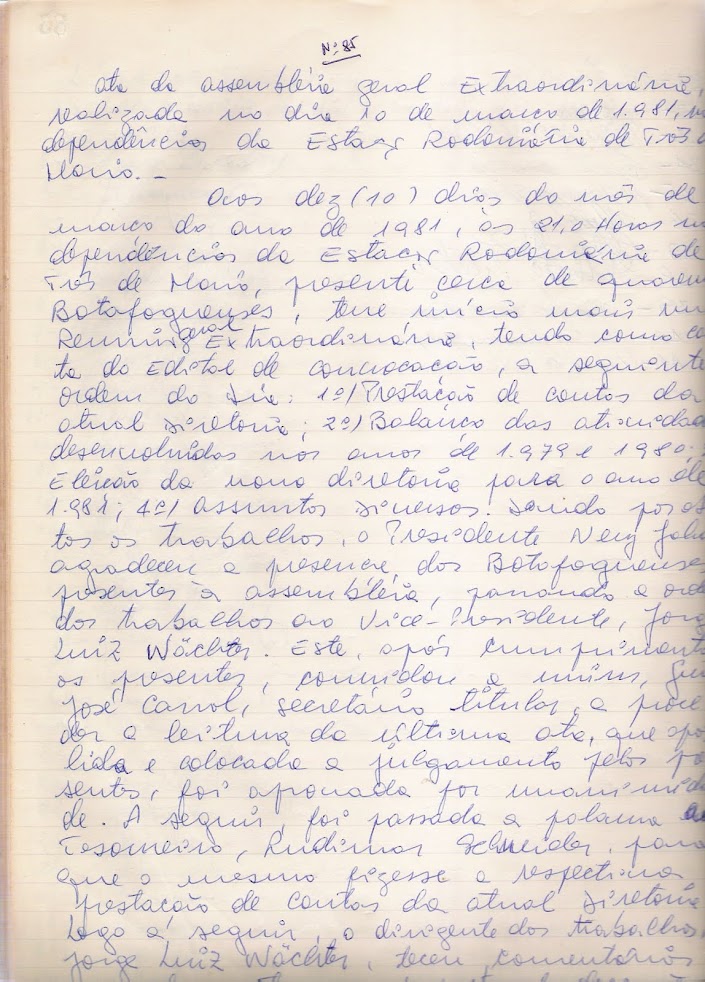 Nº 85
Ata da assembléia geral Extraordinária,
realizada no dia 10 de março de 1.981, n
dependências da Estaçg Rodoviária de Três d
Maio. –
Aos dez (10) dias do mês de
março do ano de 1981, às 21,0 Horas n
dependências da Estaçg Rodoviária de
Três de Maio, presente cerca de quaren
Botafoguenses, teve início mais um
Reunião geral Extraordinária, tendo como co
ta do Edital de convocação, a seguinte
ordem do dia: 1º) Prestação de contas da
atual Diretoria; 2º) Balanço das atividad
desenvolvidas nos anos de 1.979 e 1980;
Eleição da nova diretoria para o ano de
1.981; 4º) Assuntos Diversos. Sendo
tos os trabalhos, o Presidente Ney
agradeceu a presença dos Botafoguenses
presentes à assembléia, passando a ord
dos trabalhos ao Vice-Presidente, Jorg
Luiz Wächter. Este, após cumprimenta
os presentes, convidou a mim,
José Carrol, secretário titular, a proce
der a leitura da última ata, que apó
lida e colocada a julgamento pelos pr
sentes, foi aprovada por unanimida
de. A seguir, foi passada a palavra ao
Tesoureiro, Rudimar Schneider, para
que o mesmo fizesse a respectiva
prestação de contas da atual Diretoria
Logo a seguir, o dirigente dos trabalhos,
Jorge Luiz Wächter, teceu comentários